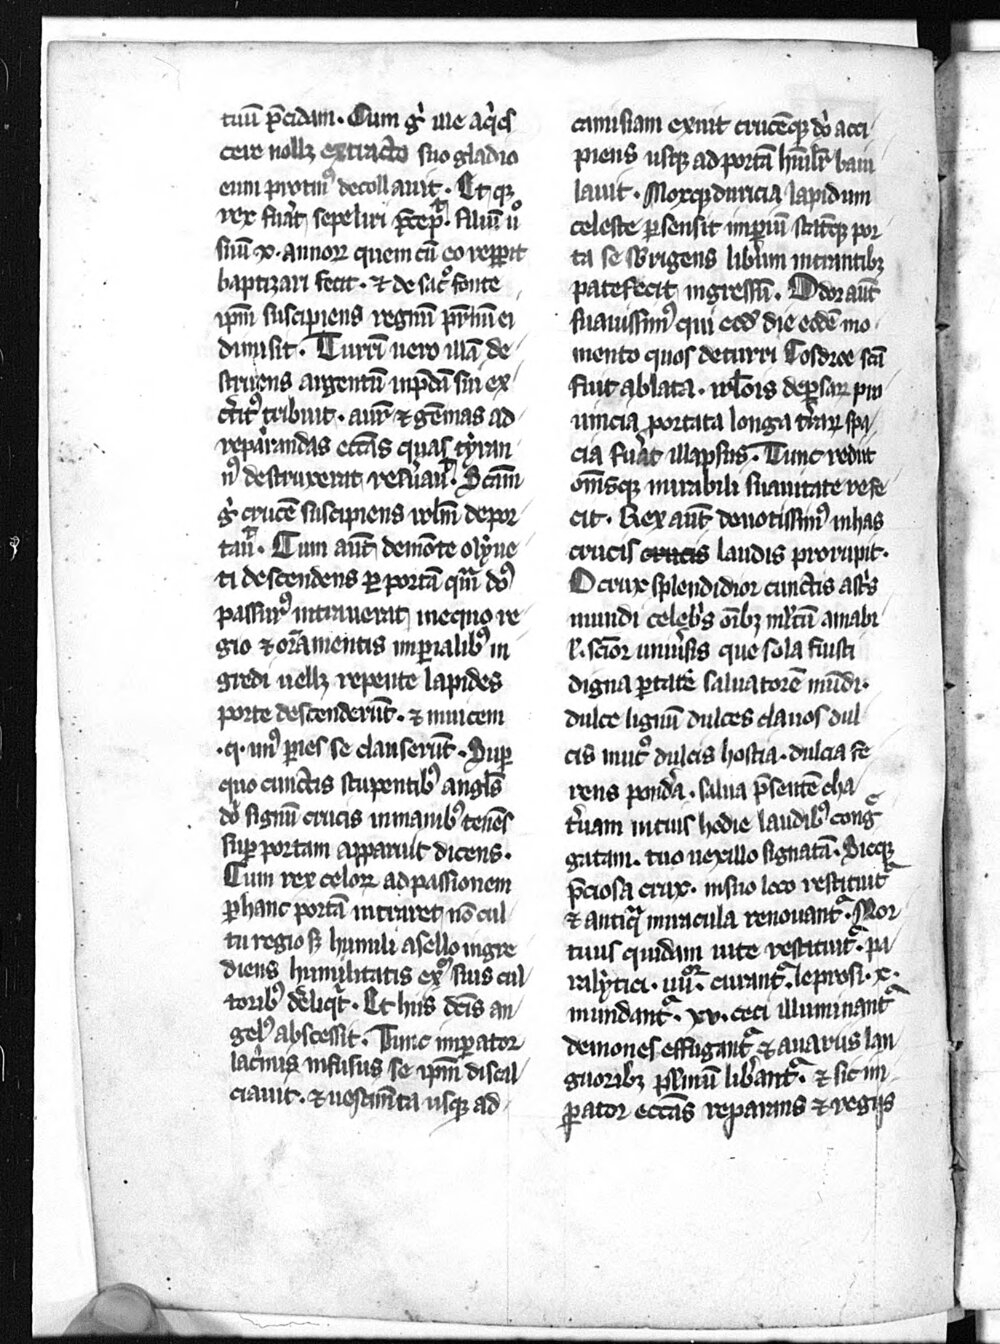 tuū p̄cidam. Cum gͥ ille aq̇es
cere nollꝫ extracto suo gladio
eum protinꝰ decollauit. Et qꝛ
rex fuāt sepeliri p̄cepͭ. filiū uͦ
suū x. annoꝝ quem cū eo reppit
baptizari fecit. ⁊ de sacͦ fonte
ip̄m suscipiens regnū pr̄nū ei
dimisit. Turrī uero illā de
struens argentū in p̄dā sui ex
cͥitꝰ tribuit. auꝝ ⁊ gēmas ad
reparandas ecc̄as quas tyran
nꝰ destruxerat reſuauͭ. Sc̄am
gͥ crucē suscipiens ierl̄m depor
tauͭ. Cum aūt de mōte olyue
ti descendens ꝑ portā qͣm dn̄s
passurꝰ intrauerat in equo re
gio ⁊ or̄amentis imꝑialibꝰ in
gredi uellꝫ repente lapides
porte descenderūt. ⁊ inuicem
.q. unꝰ paries se clauserūt. Suꝑ
quo cunctis stupentibꝰ angl̄s
dn̄i signū crucis in manibꝰ tenēs
suꝑ portam apparuit dicens.
Cum rex celoꝝ ad passionem
ꝑ hanc portā intraret nō cul
tu regio sꝫ humili asello ingre
diens humilitatis exͫ suis cul
toribꝰ dereliqͭ. Et hiis dc̄is an
gelꝰ abscessit. Tunc imꝑator
lacͥmis infusus se ip̄m discal
ciauit. ⁊ uestim̄ta usqꝫ ad
camisiam exuit crucēqꝫ dn̄i acci
piens usqꝫ ad portā hūilr̄ baiu
lauit. Moxqꝫ duricia lapidum
celeste ꝑsensit imꝑiū statīqꝫ por
ta se sb̄rigens lib̄um intrantibꝫ
patefecit ingressū. Odor aūt
suauissimꝰ qui eodē die eodē mo
mento quos de turri Cosdroe sc̄a
fuit ablata. ierl̄ois de ꝑsaꝝ pro
uincia portata longa tr̄aꝝ spa
cia fuāt illapsus. Tunc rediit
om̄sqꝫ mirabili suauitate refe
cit. Rex aūt deuotissimꝰ in has
crucis crucis laudis prorupit.
O crux splendidior cunctis astͥs
mundi celebͥs oībꝫ ml̄tū amabi
lͥ. sc̄ior uniūsis que sola fuisti
digna portare saluatorē mūdi.
dulce lignū dulces clauos dul
cis mucͦ dulcis hostia. dulcia fe
rens pondͣa. salua p̄sentē cha
tūam in tuis hodie laudibꝰ congͤ
gatam. tuo uexillo signatā. Sicqꝫ
p̄ciosa crux. in suo loco restituitͬ
⁊ antiqͣ miracula renouantͬ. Mor
tuus quidam uite restituitͬ. pa
ralytici. iiiiͦʳ. curantͬ. leprosi. x.
mundantͬ. xv. ceci illuminantͬ
demones effugantͬ ⁊ a uariis lan
guoribꝫ pl̄imū lib̄antͬ. ⁊ sic im
ꝑator ecc̄as reparans ⁊ regiis